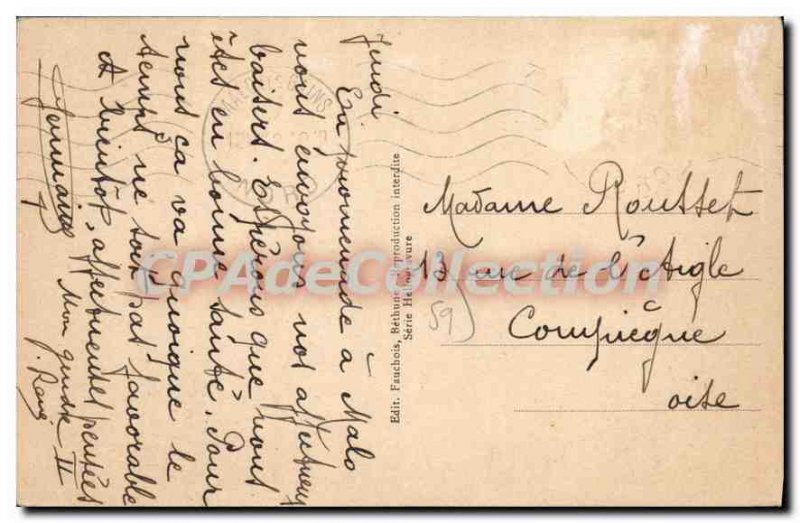 Jeudi
En promenade à Malo
nous envoyons nos affectueux
baisers. Espérons que vous
êtes en bonne santé. Pour
nous ça va quoique le
temps ne soit pas favorable
A bientôt, affectueuses pensées
Germaine
Mon guide II
J. René
Edit. Fauchois, Béthune. Reproduction interdite
Série Héliogravure
Madame Rousset
13 rue de l'Aigle
Compiègne
oise
59
NORD
CPAdeCollection